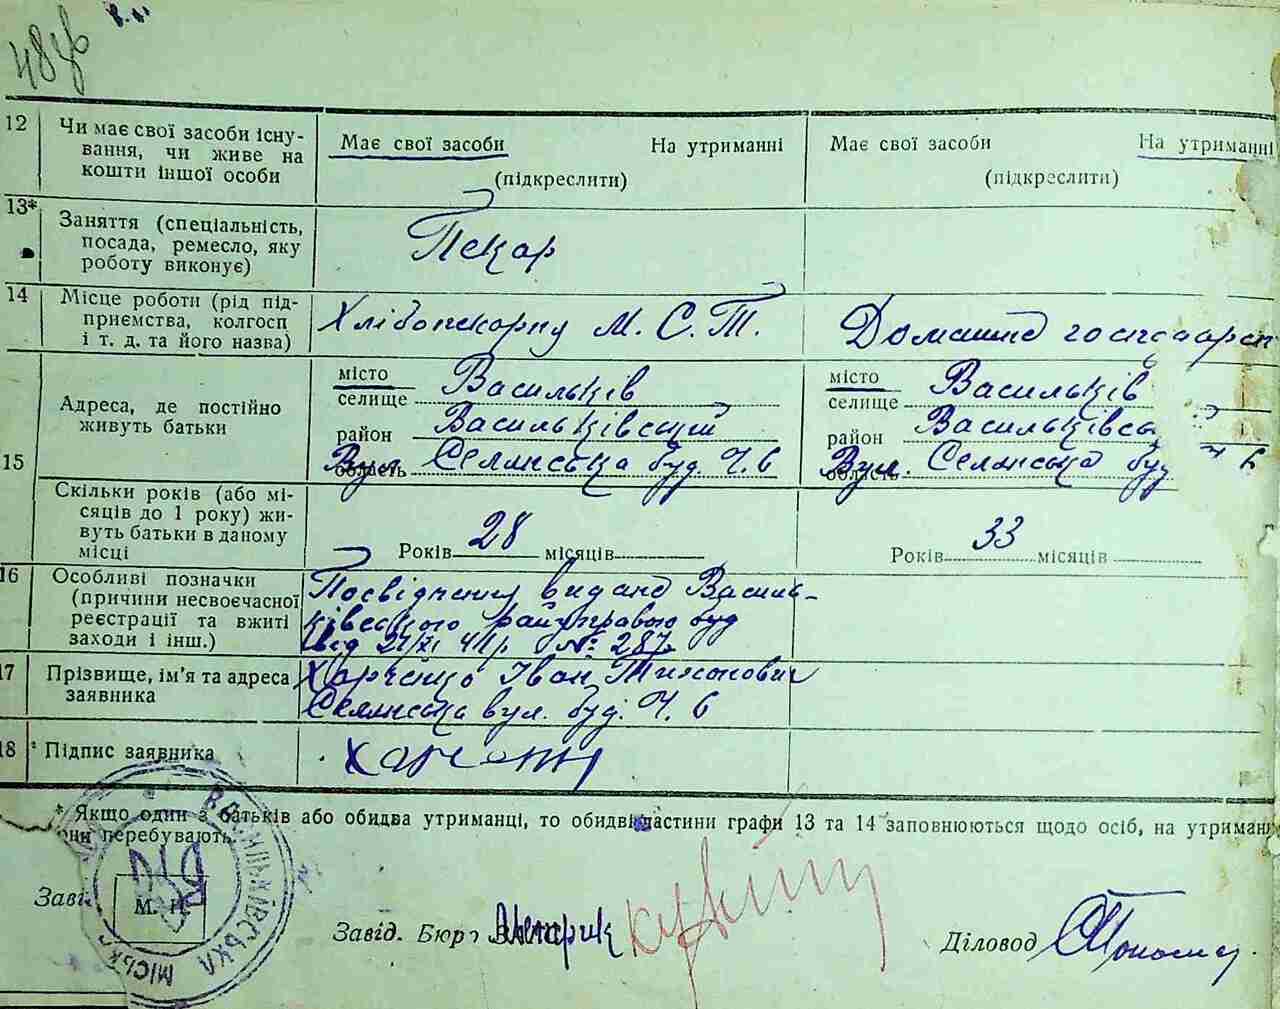 12 Чи має свої засоби існу-
вання, чи живе на
кошти іншої особи
Має свої засоби На утриманні
(підкреслити)
Має свої засоби На утриманні
(підкреслити)
13* Заняття (спеціальність,
посада, ремесло, яку
роботу виконує)
Пекар
14 Місце роботи (рід під-
приємства, колгосп
і т. д. та його назва)
Хлібопекарня М. С. Т.
Домашнє господарст
15 Адреса, де постійно
живуть батьки
місто Васильків
селище
район Васильківський
область Вул. Селянська буд. Ч. 6
місто Васильків
селище
район Васильківсь
область Вул. Селянська буд ч 6
Скільки років (або мі-
сяців до 1 року) жи-
вуть батьки в даному
місці
Років 28 місяців
Років 33 місяців
16 Особливі позначки
(причини несвоєчасної
реєстрації та вжиті
заходи і інш.)
Посвідчення видане Василь-
ківського райуправою буд
від 21/XI 41р. № 287
17 Прізвище, ім'я та адреса
заявника
Харченко Іван Тихонович
Селянська вул. буд. Ч. 6
18 Підпис заявника
* Якщо один з батьків або обидва утриманці, то обидві частини графи 13 та 14 заповнюються щодо осіб, на утриман
они перебувають.
ВАСИЛЬКІВСЬКА МІСЬК
М. П.
Заві
Завід. Бюро
Діловод